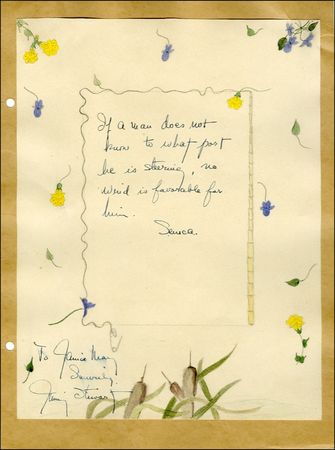 If a man does not
know to what port
he is steering, no
wind is favorable for
him.
Seneca.
To Janice Mary
Sincerely,
Jimmy Stewart